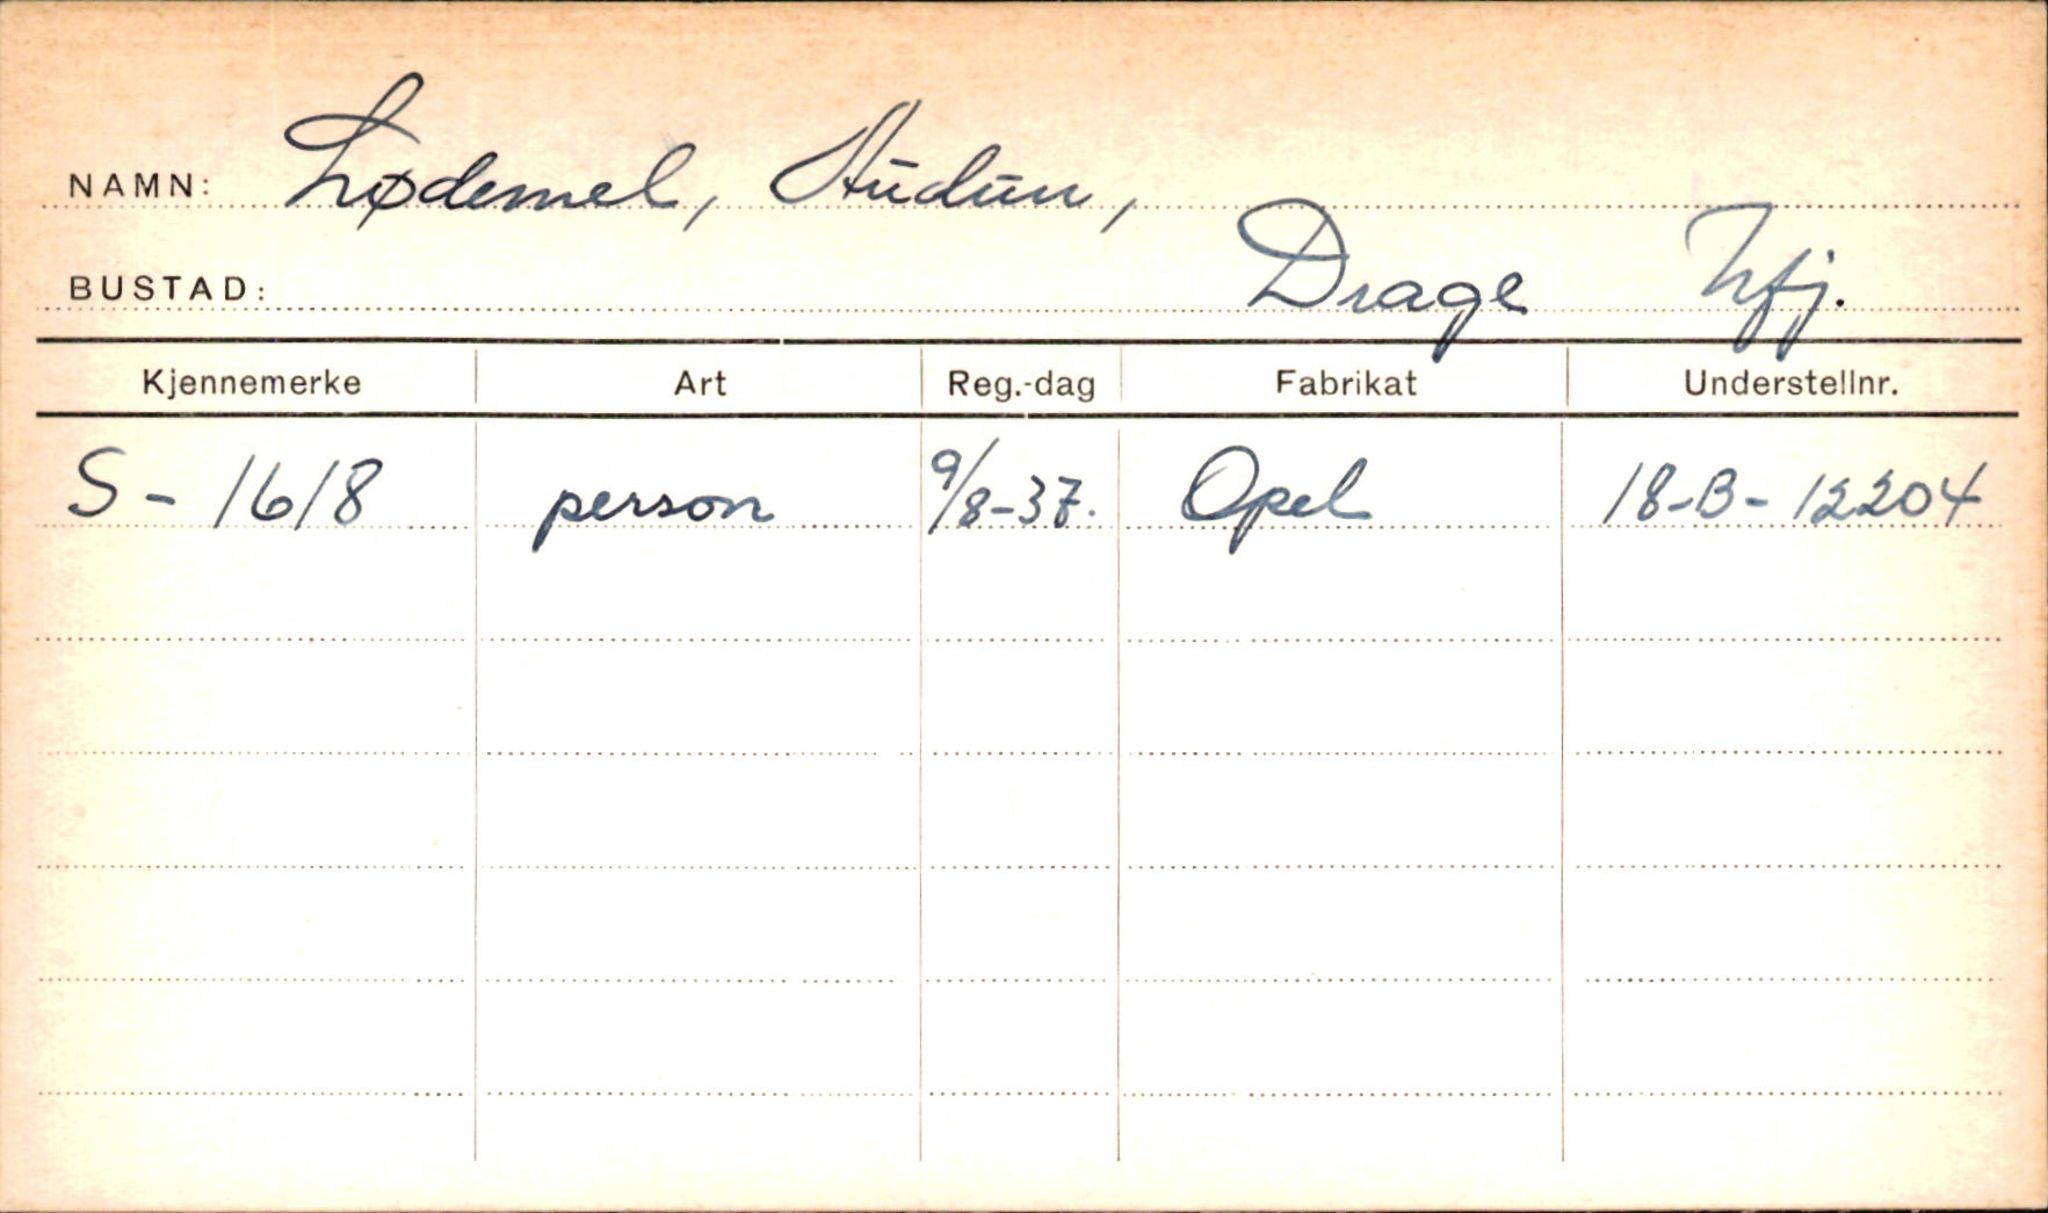 NAMN: Lødemel, Audun,
BUSTAD: Drage Nfj.
Kjennemerke Art Reg.-dag Fabrikat Understellnr.
S - 1618 person 9/8-37. Opel 18-B-12204